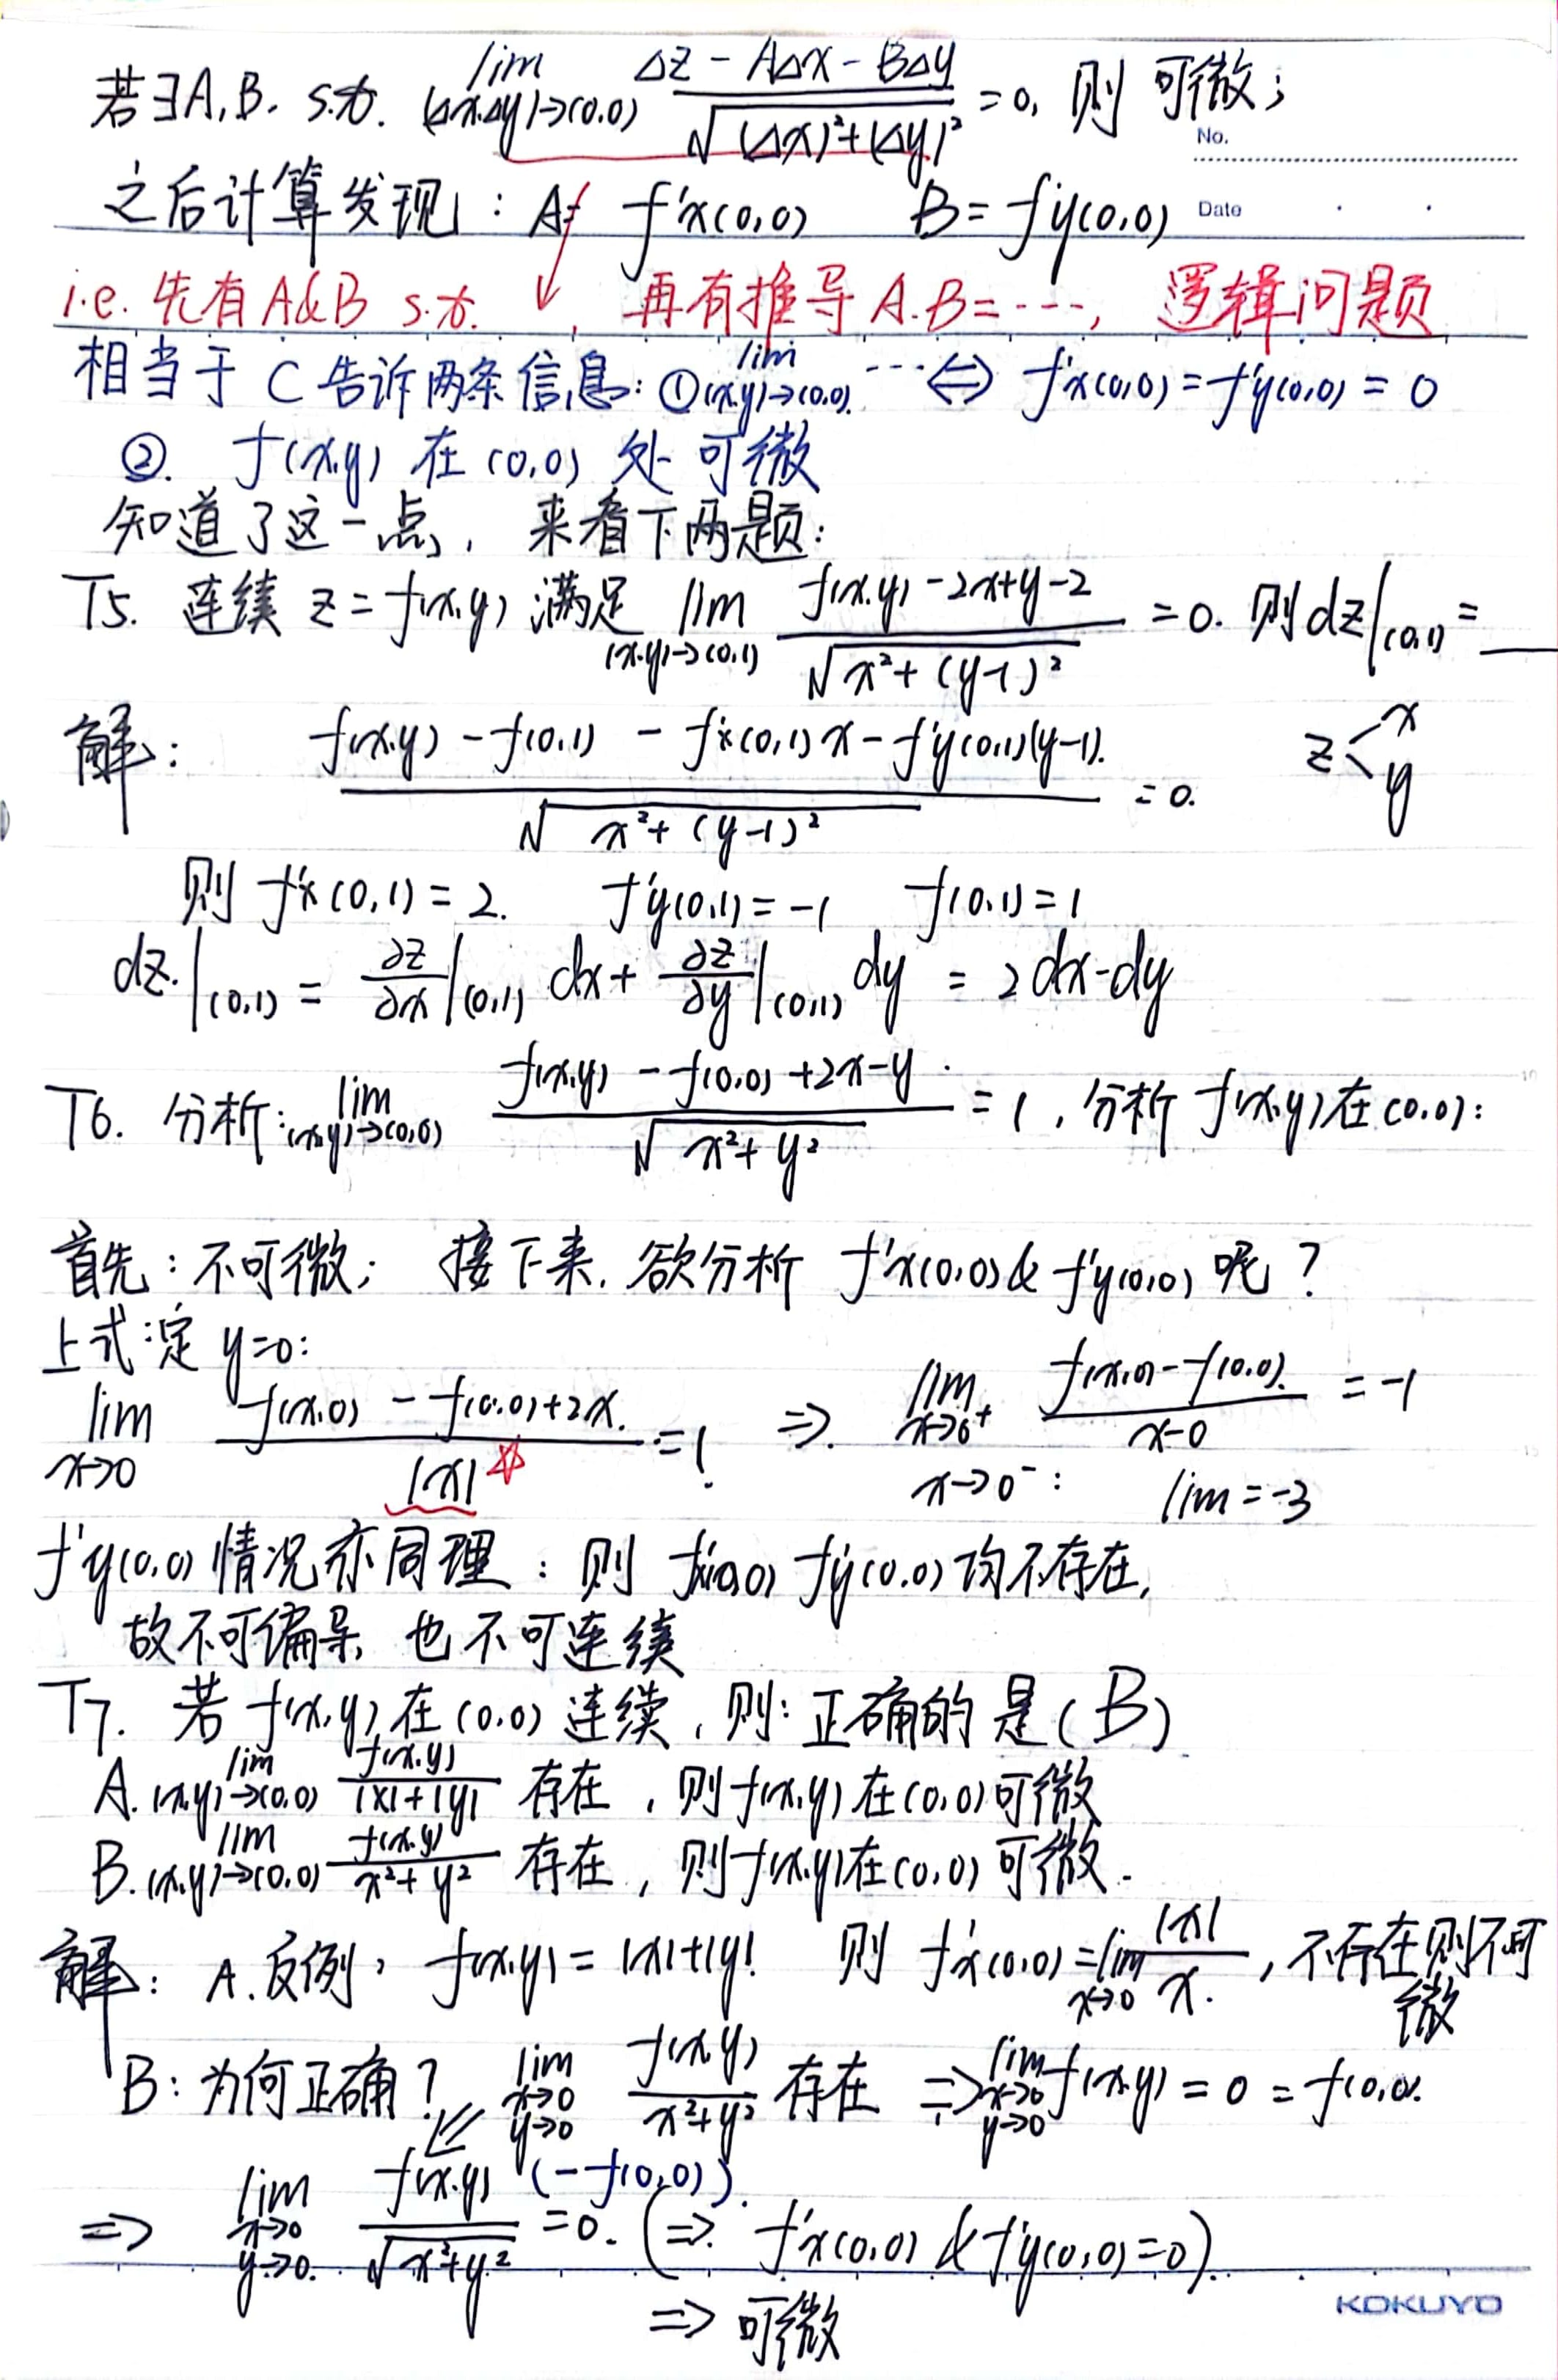 若∃A,B. s.t. lim (Δx,Δy)→(0,0) (Δz - AΔx - BΔy)/√((Δx)²+(Δy)²) = 0, 则 可微;
No.
之后计算发现: A= f'x(0,0) B= f'y(0,0)
Date
i.e. 先有A&B s.t. ↓, 再有推导 A.B=---, 逻辑问题
相当于 C 告诉两条信息: ① lim (x,y)→(0,0) ... ⇔ f'x(0,0) = f'y(0,0) = 0
②. f(x,y) 在 (0,0) 处 可微
知道了这一点, 来看下两题:
T5. 连续 z = f(x,y) 满足 lim (x,y)→(0,1) (f(x,y) - 2x+y-2)/√(x²+(y-1)²) = 0. 则 dz|(0,1) = __
解: (f(x,y) - f(0,1) - f'x(0,1)x - f'y(0,1)(y-1).)/√(x²+(y-1)²) = 0. z< x y
则 f'x(0,1) = 2. f'y(0,1) = -1 f(0,1) = 1
dz.|(0,1) = ∂z/∂x|(0,1) dx + ∂z/∂y|(0,1) dy = 2dx-dy
T6. 分析: lim (x,y)→(0,0) (f(x,y) - f(0,0) +2x-y)/√(x²+y²) = 1, 分析 f(x,y)在(0,0):
首先: 不可微; 接下来, 欲分析 f'x(0,0) & f'y(0,0) 呢?
上式: 定 y=0:
lim x→0 (f(x,0) - f(0,0)+2x.)/|x| = 1. ⇒. lim x→0⁺ (f(x,0)-f(0,0).)/(x-0) = -1
x→0⁻: lim = -3
f'y(0,0) 情况亦同理: 则 f'x(0,0) f'y(0,0) 均不存在,
故不可偏导, 也不可连续
T7. 若 f(x,y) 在 (0,0) 连续, 则: 正确的是 (B)
A. lim (x,y)→(0,0) f(x,y)/(|x|+|y|) 存在, 则 f(x,y) 在(0,0)可微
B. lim (x,y)→(0,0) f(x,y)/(x²+y²) 存在, 则f(x,y)在(0,0) 可微.
解: A. 反例, f(x,y) = |x|+|y| 则 f'x(0,0) = lim x→0 |x|/x., 不存在则不可微
B: 为何正确? lim x→0 y→0 f(x,y)/(x²+y²) 存在 ⇒ lim x→0 y→0 f(x,y) = 0 = f(0,0).
⇒ lim x→0 y→0. f(x,y) (-f(0,0))/√(x²+y²) = 0. (⇒. f'x(0,0) & f'y(0,0)=0).
⇒ 可微
KOKUYO